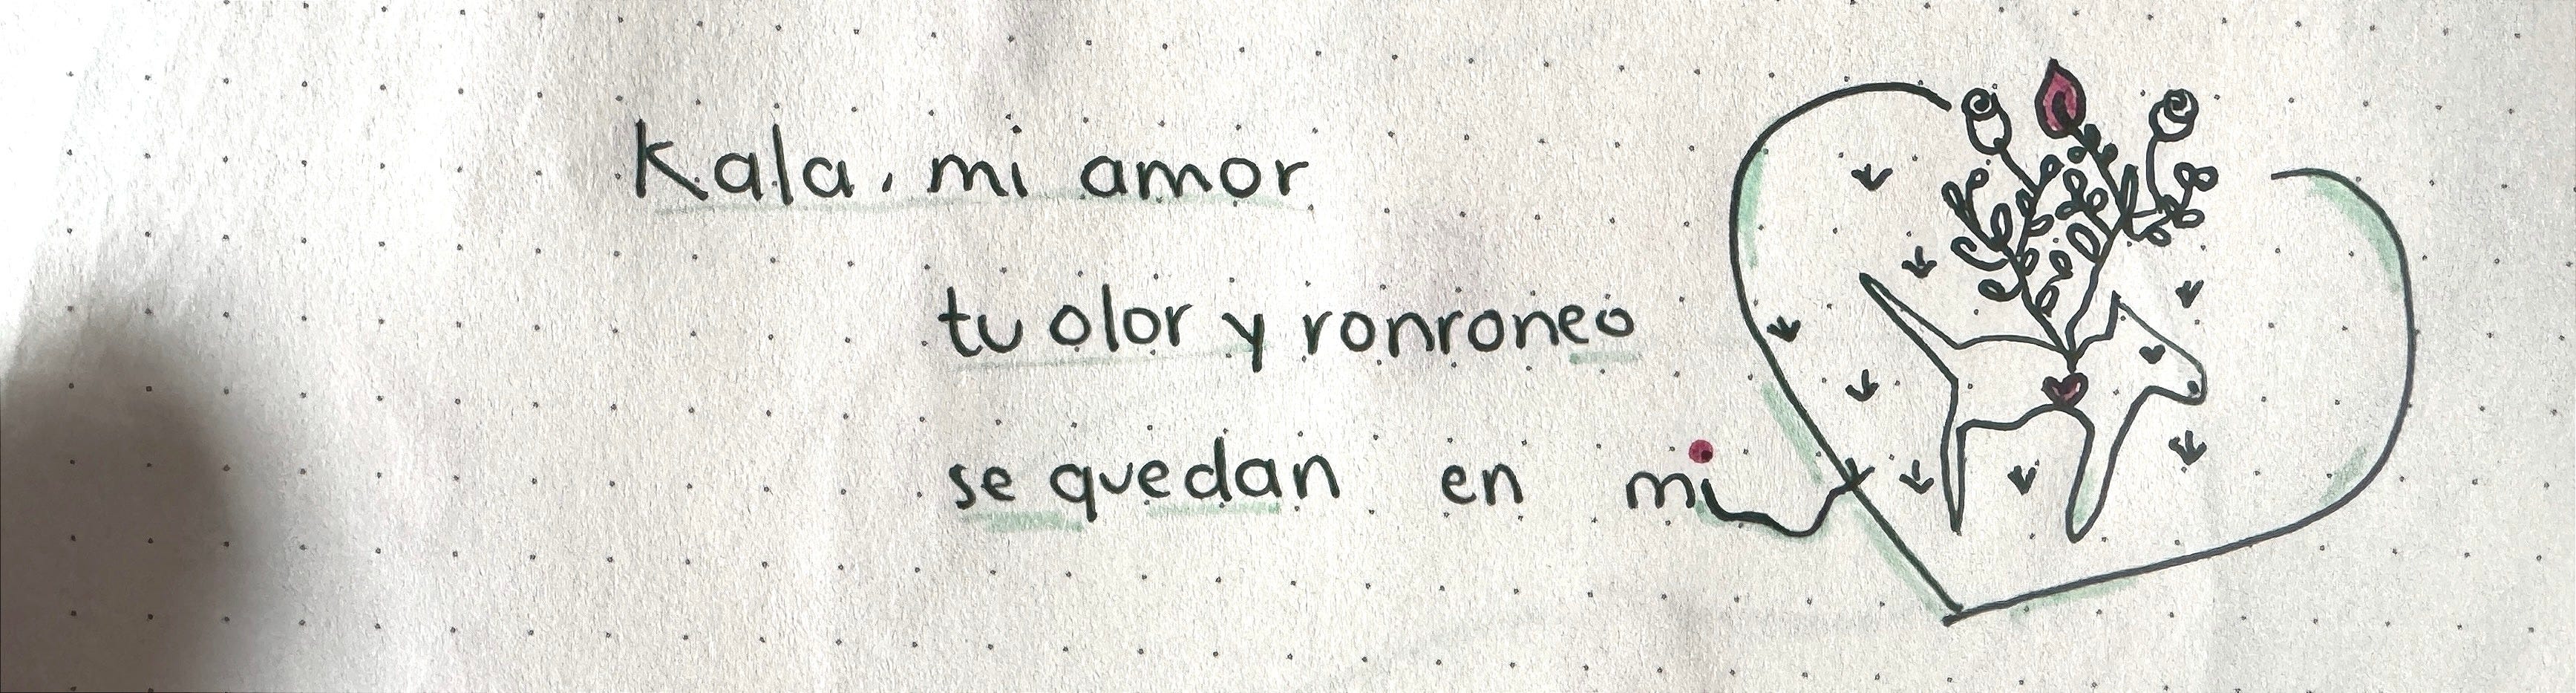 Kala, mi amor
tu olor y ronroneo
se quedan en mi